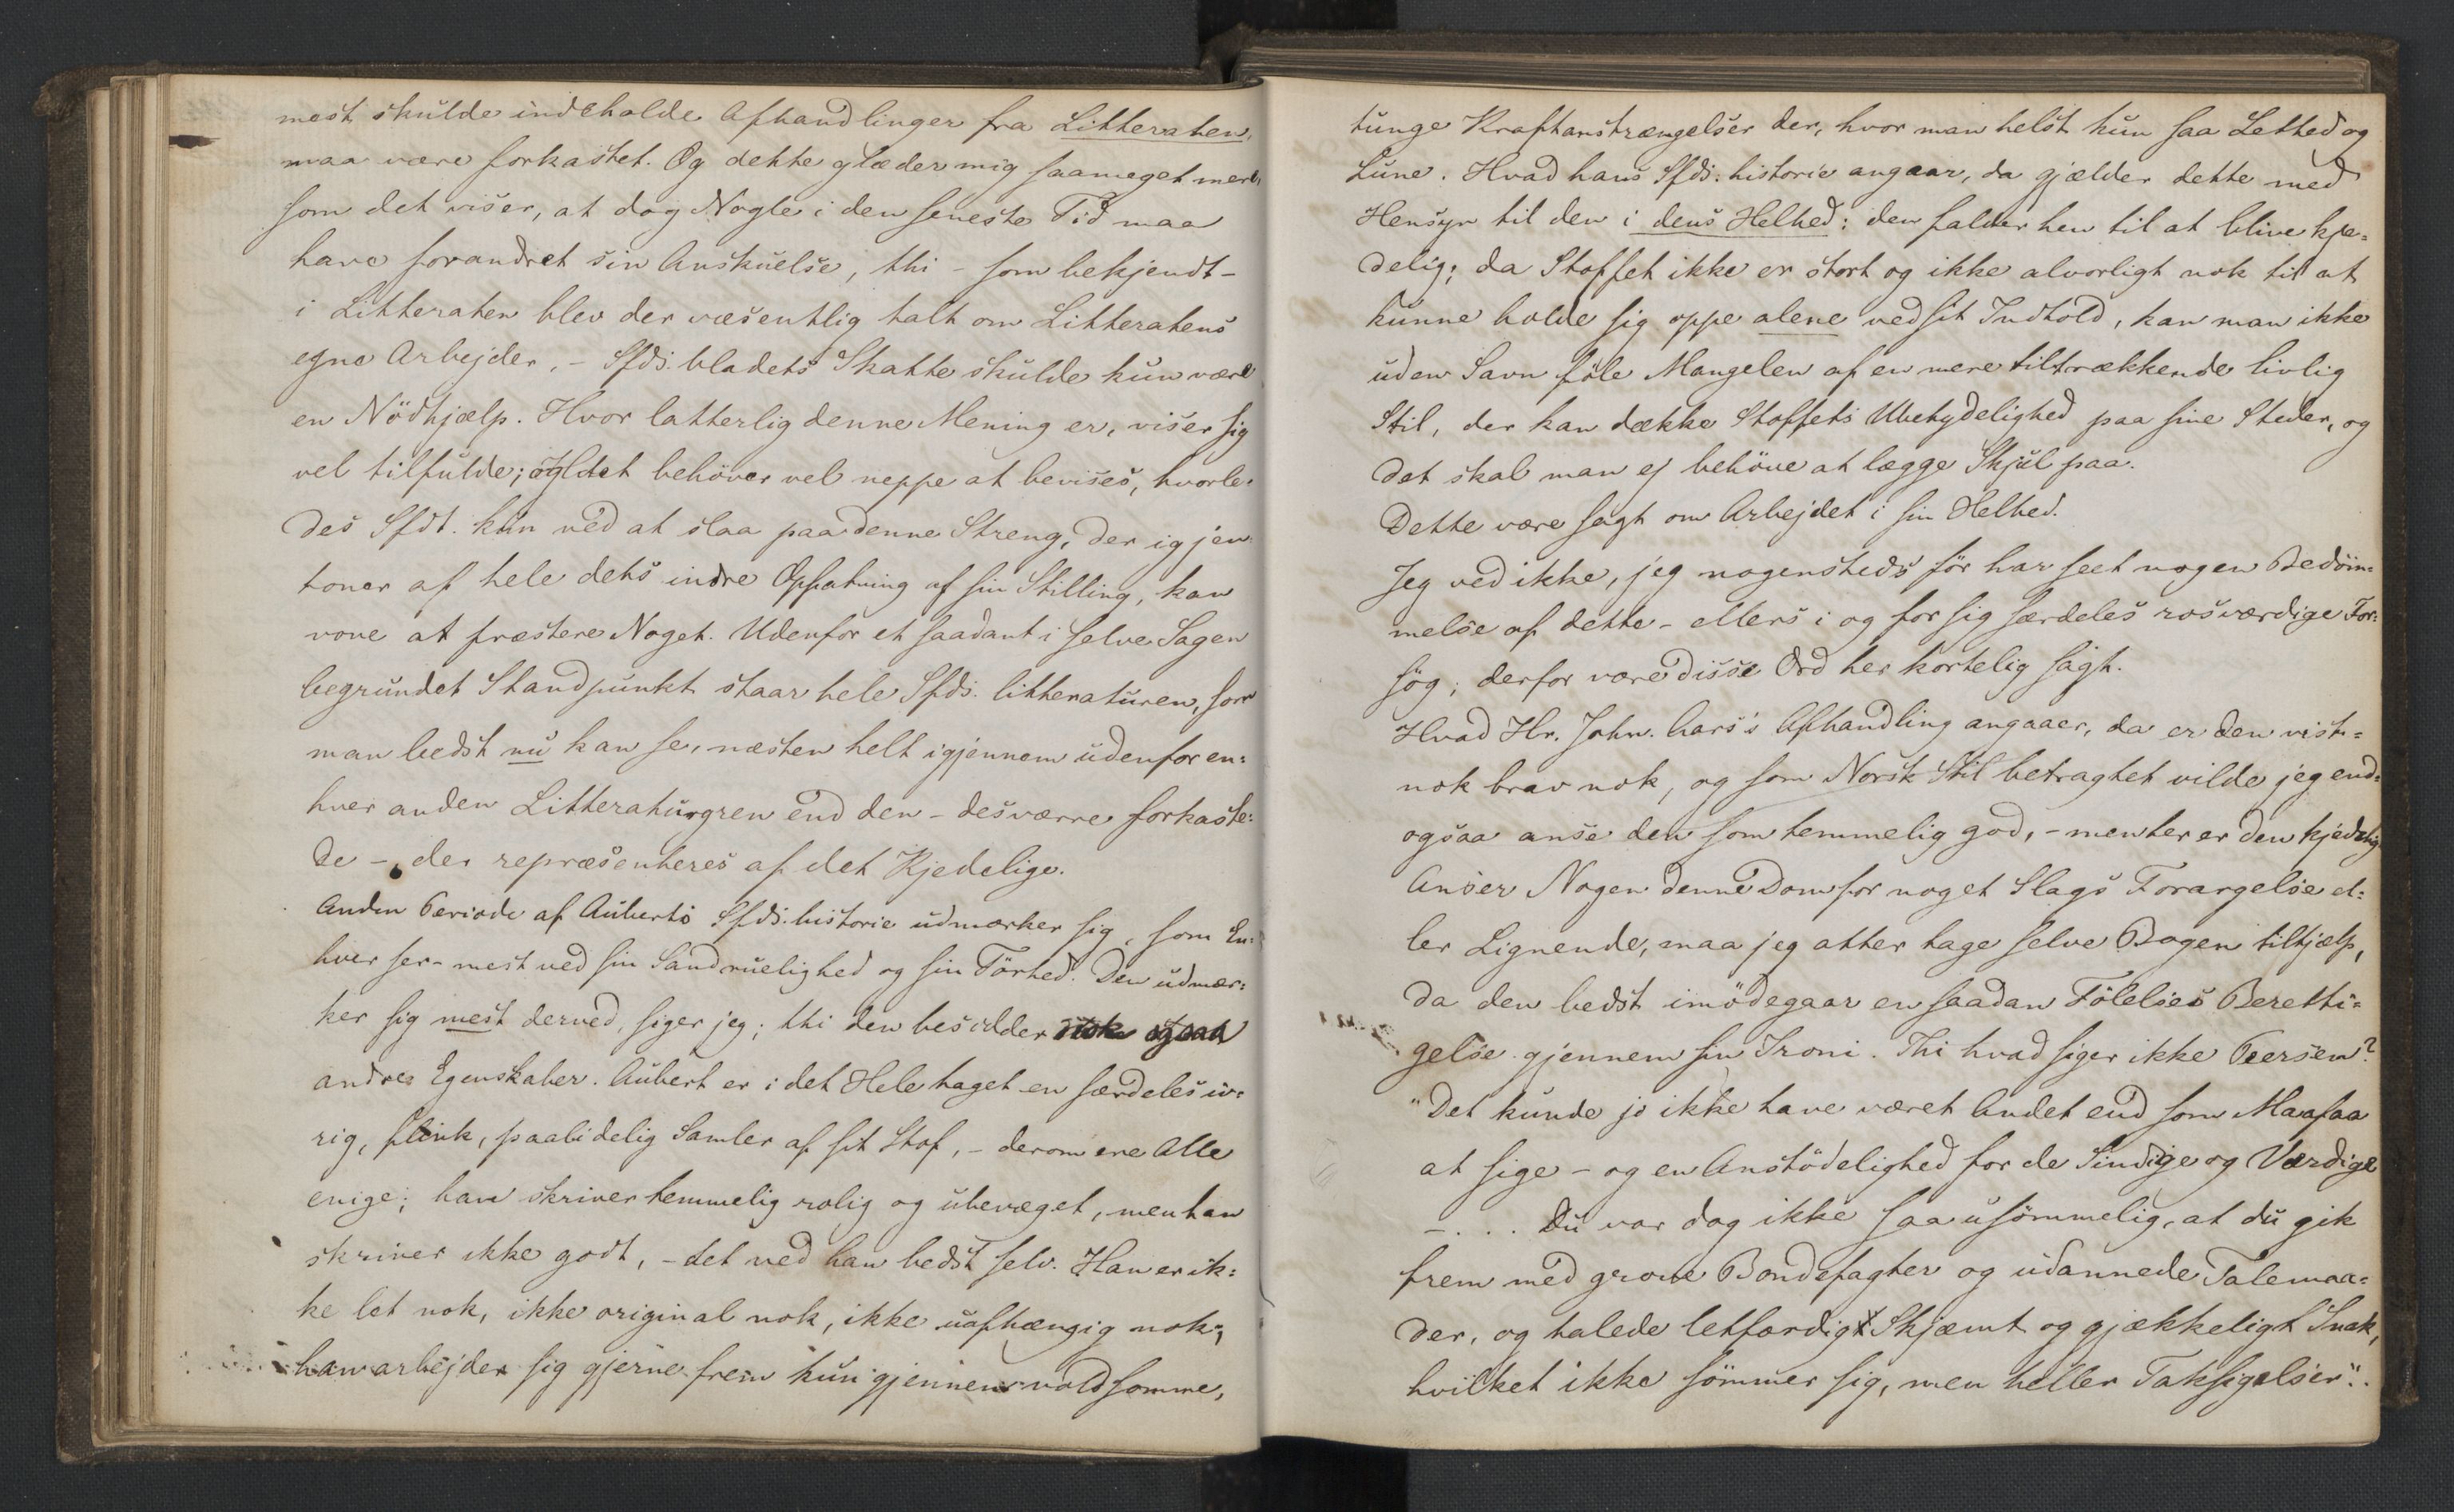 mest skulde indeholde Afhandlinger fra Litteraten,
maa være forkastet. Og dette glæder mig saameget mere,
som det viser, at dog Nogle i den seneste Tid maa
have forandret sin Anskuelse, thi - som bekjendt -
i Litteraten blev der væsentlig talt om Litteratens
egne Arbejder, - Sfds. bladets Skatte skulde kun være
en Nödhjælp. Hvor latterlig denne Mening er, viser sig
vel tilfulde; og det behöver vel neppe at bevises, hvorle-
des Sfdt. kun ved at slaa paa denne Streng, der igjen-
toner af hele dets indre Opfatning af sin Stilling, kan
vove at præstere Noget. Udenfor et saadant i selve Sagen
begrundet Standpunkt staar hele Sfds. litteraturen, som
man bedst nu kan se, næsten helt igjennem udenfor en-
hver anden Litteraturgren end den - desværre forkaste-
de -, der repræsenteres af det Kjedelige.
Anden Periode af Auberts Sfds. historie udmærker sig, som En-
hver ser - mest ved sin Sandruelighed og sin Törhed. Den udmær-
ker sig mest derved, siger jeg; thi den besidder nok ogsaa
andre Egenskaber. Aubert er i det Hele taget en særdeles iv-
rig, flink, paalidelig Samler af sit Stof, - derom ere Alle
enige; han skriver temmelig rolig og ubevæget, men han
skriver ikke godt, - det ved han bedst selv. Han er ik-
ke let nok, ikke original nok, ikke uafhængig nok;
han arbejder sig gjerne frem kun gjennem voldsomme,
tunge Kraftanstrængelser der, hvor man helst kun saa Lethed og
Lune. Hvad hans Sfds. historie angaar, da gjælder dette med
Hensyn til den i dens Helhed: den falder hen til at blive kje-
delig; da Stoffet ikke er stort og ikke alvorligt nok til at
kunne holde sig oppe alene ved sit Indhold, kan man ikke
uden Savn föle Mangelen af en mere tiltrækkende livlig
Stil, der kan dække Stoffets Ubetydelighed paa sine Steder, og
det skal man ej behöve at lægge Skjul paa.
Dette være sagt om Arbejdet i sin Helhed.
Jeg ved ikke, jeg nogensteds för har seet nogen Bedöm-
melse af dette - ellers i og for sig særdeles rosværdige For-
sög; derfor være disse Ord her kortelig sagt.
Hvad Hr. John. Lars's Afhandling angaaer, da er den vist-
nok brav nok, og som Norsk Stil betragtet vilde jeg end-
ogsaa anse den som temmelig god, - men her er den kjedelig
Anser Nogen denne Dom for noget Slags Forargelse el-
ler Lignende, maa jeg atter tage selve Bogen tilhjælp,
da den bedst imödegaar en saadan Fölelses Beretti-
gelse gjennem sin Ironi. Thi hvad siger ikke Peersen?
"Det kunde jo ikke have været Andet end som Maasaa
at sige - og en Anstödelighed for de Sindige og Værdige
- . . . Du var dog ikke saa usömmelig, at du gik
frem med grove Bondefagter og udannede Talemaa-
der, og talede letfærdigt Skjæmt og gjækkeligt Snak,
hvilket ikke sömmer sig, men heller Taksigelser".